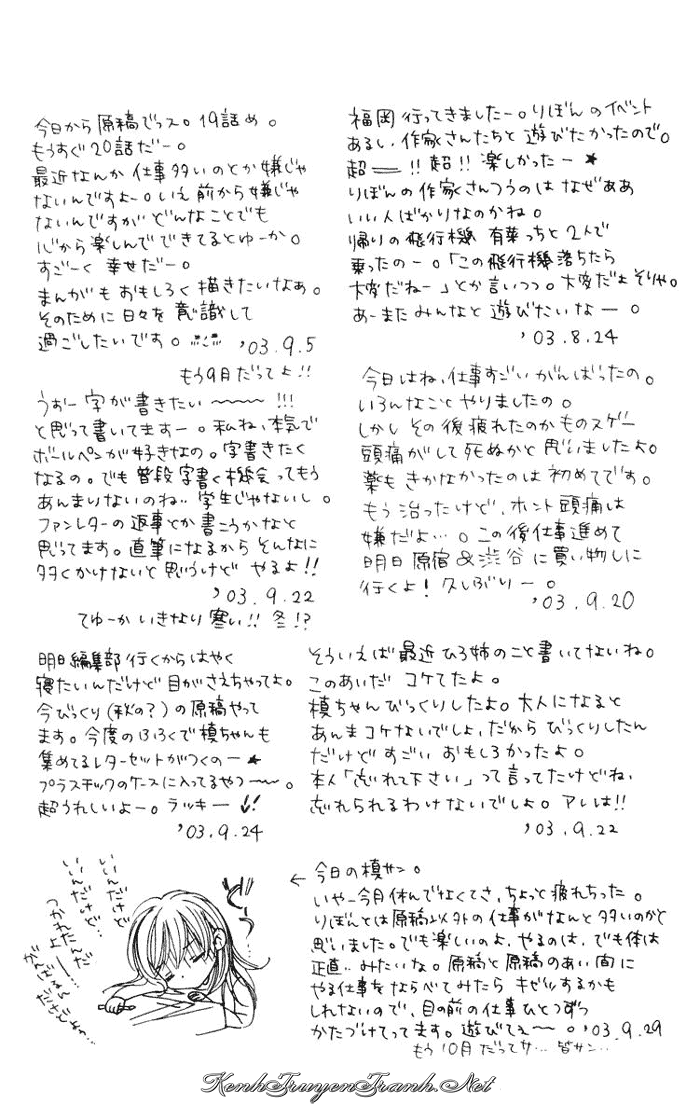 福岡行ってきましたー。りぼんのイベント
あるし、作家さんたちと遊びたかったので。
超――!!超!!楽しかったー★
りぼんの作家さんつうのは なぜああ
いい人ばかりなのかね。
帰りの飛行機 有菜っちと2人で
乗ったのー。「この飛行機落ちたら
大変だねー」とか言いつつ。大変だよそりゃ。
あーまたみんなと遊びたいなー。
'03.8.24
今日から原稿でっス。19話め。
もうすぐ20話だー。
最近なんか仕事多いのとか嫌じゃ
ないんですよー。いえ前から嫌じゃ
ないんですが どんなことでも
心から楽しんでできてるとゆーか。
すごーく幸せだー。
まんがもおもしろく描きたいなあ。
そのために日々を意識して
過ごしたいです。
'03.9.5
もう9月だってよ!!
今日はね、仕事すごいがんばったの。
いろんなことやりましたの。
しかしその後疲れたのかものスゲー
頭痛がして死ぬかと思いましたよ。
薬もきかなかったのは初めてです。
もう治ったけど、ホント頭痛は
嫌だよ…。この後仕事進めて
明日原宿&渋谷に買い物しに
行くよ!久しぶりー。
'03.9.20
うおー字が書きたい〜〜〜!!!
と思って書いてますー。私ね、本気で
ボールペンが好きなの。字書きたく
なるの。でも普段字書く機会ってもう
あんまりないのね‥学生じゃないし。
ファンレターの返事とか書こうかなと
思ってます。直筆になるからそんなに
多くかけないと思うけど やるよ!!
'03.9.22
てゆーかいきなり寒い!!冬!?
そういえば最近ひろ姉のこと書いてないね。
このあいだ コケてたよ。
槙ちゃんびっくりしたよ。大人になると
あんまコケないでしょ、だからびっくりしたん
だけどすごいおもしろかったよ。
本人「忘れて下さい」って言ってたけどね、
忘れられるわけないでしょ。アレは!!
'03.9.22
明日編集部行くからはやく
寝たいんだけど目がさえちゃってよ。
今びっくり(秋の?)の原稿やって
ます。今度のふろくで槙ちゃんも
集めてるレターセットがつくのー★
プラスチックのケースに入ってるやつ〜〜。
超うれしいよー。ラッキー!!
'03.9.24
← 今日の槙サン。
いやー今月休んでなくてさ、ちょっと疲れちった。
りぼんとは原稿以外の仕事がなんと多いのかと
思いました。でも楽しいのよ、やるのは、でも体は
正直‥みたいな。原稿と原稿のあい間に
やる仕事をならべてみたらキゼツするかも
しれないので、目の前の仕事ひとつずつ
かたづけてってます。遊びてぇ〜。'03.9.29
もう10月だってサ…皆サン…
いいんだけど
いいんだけど…
つかれたんだ
よー…
KenhTruyenTranh.Net